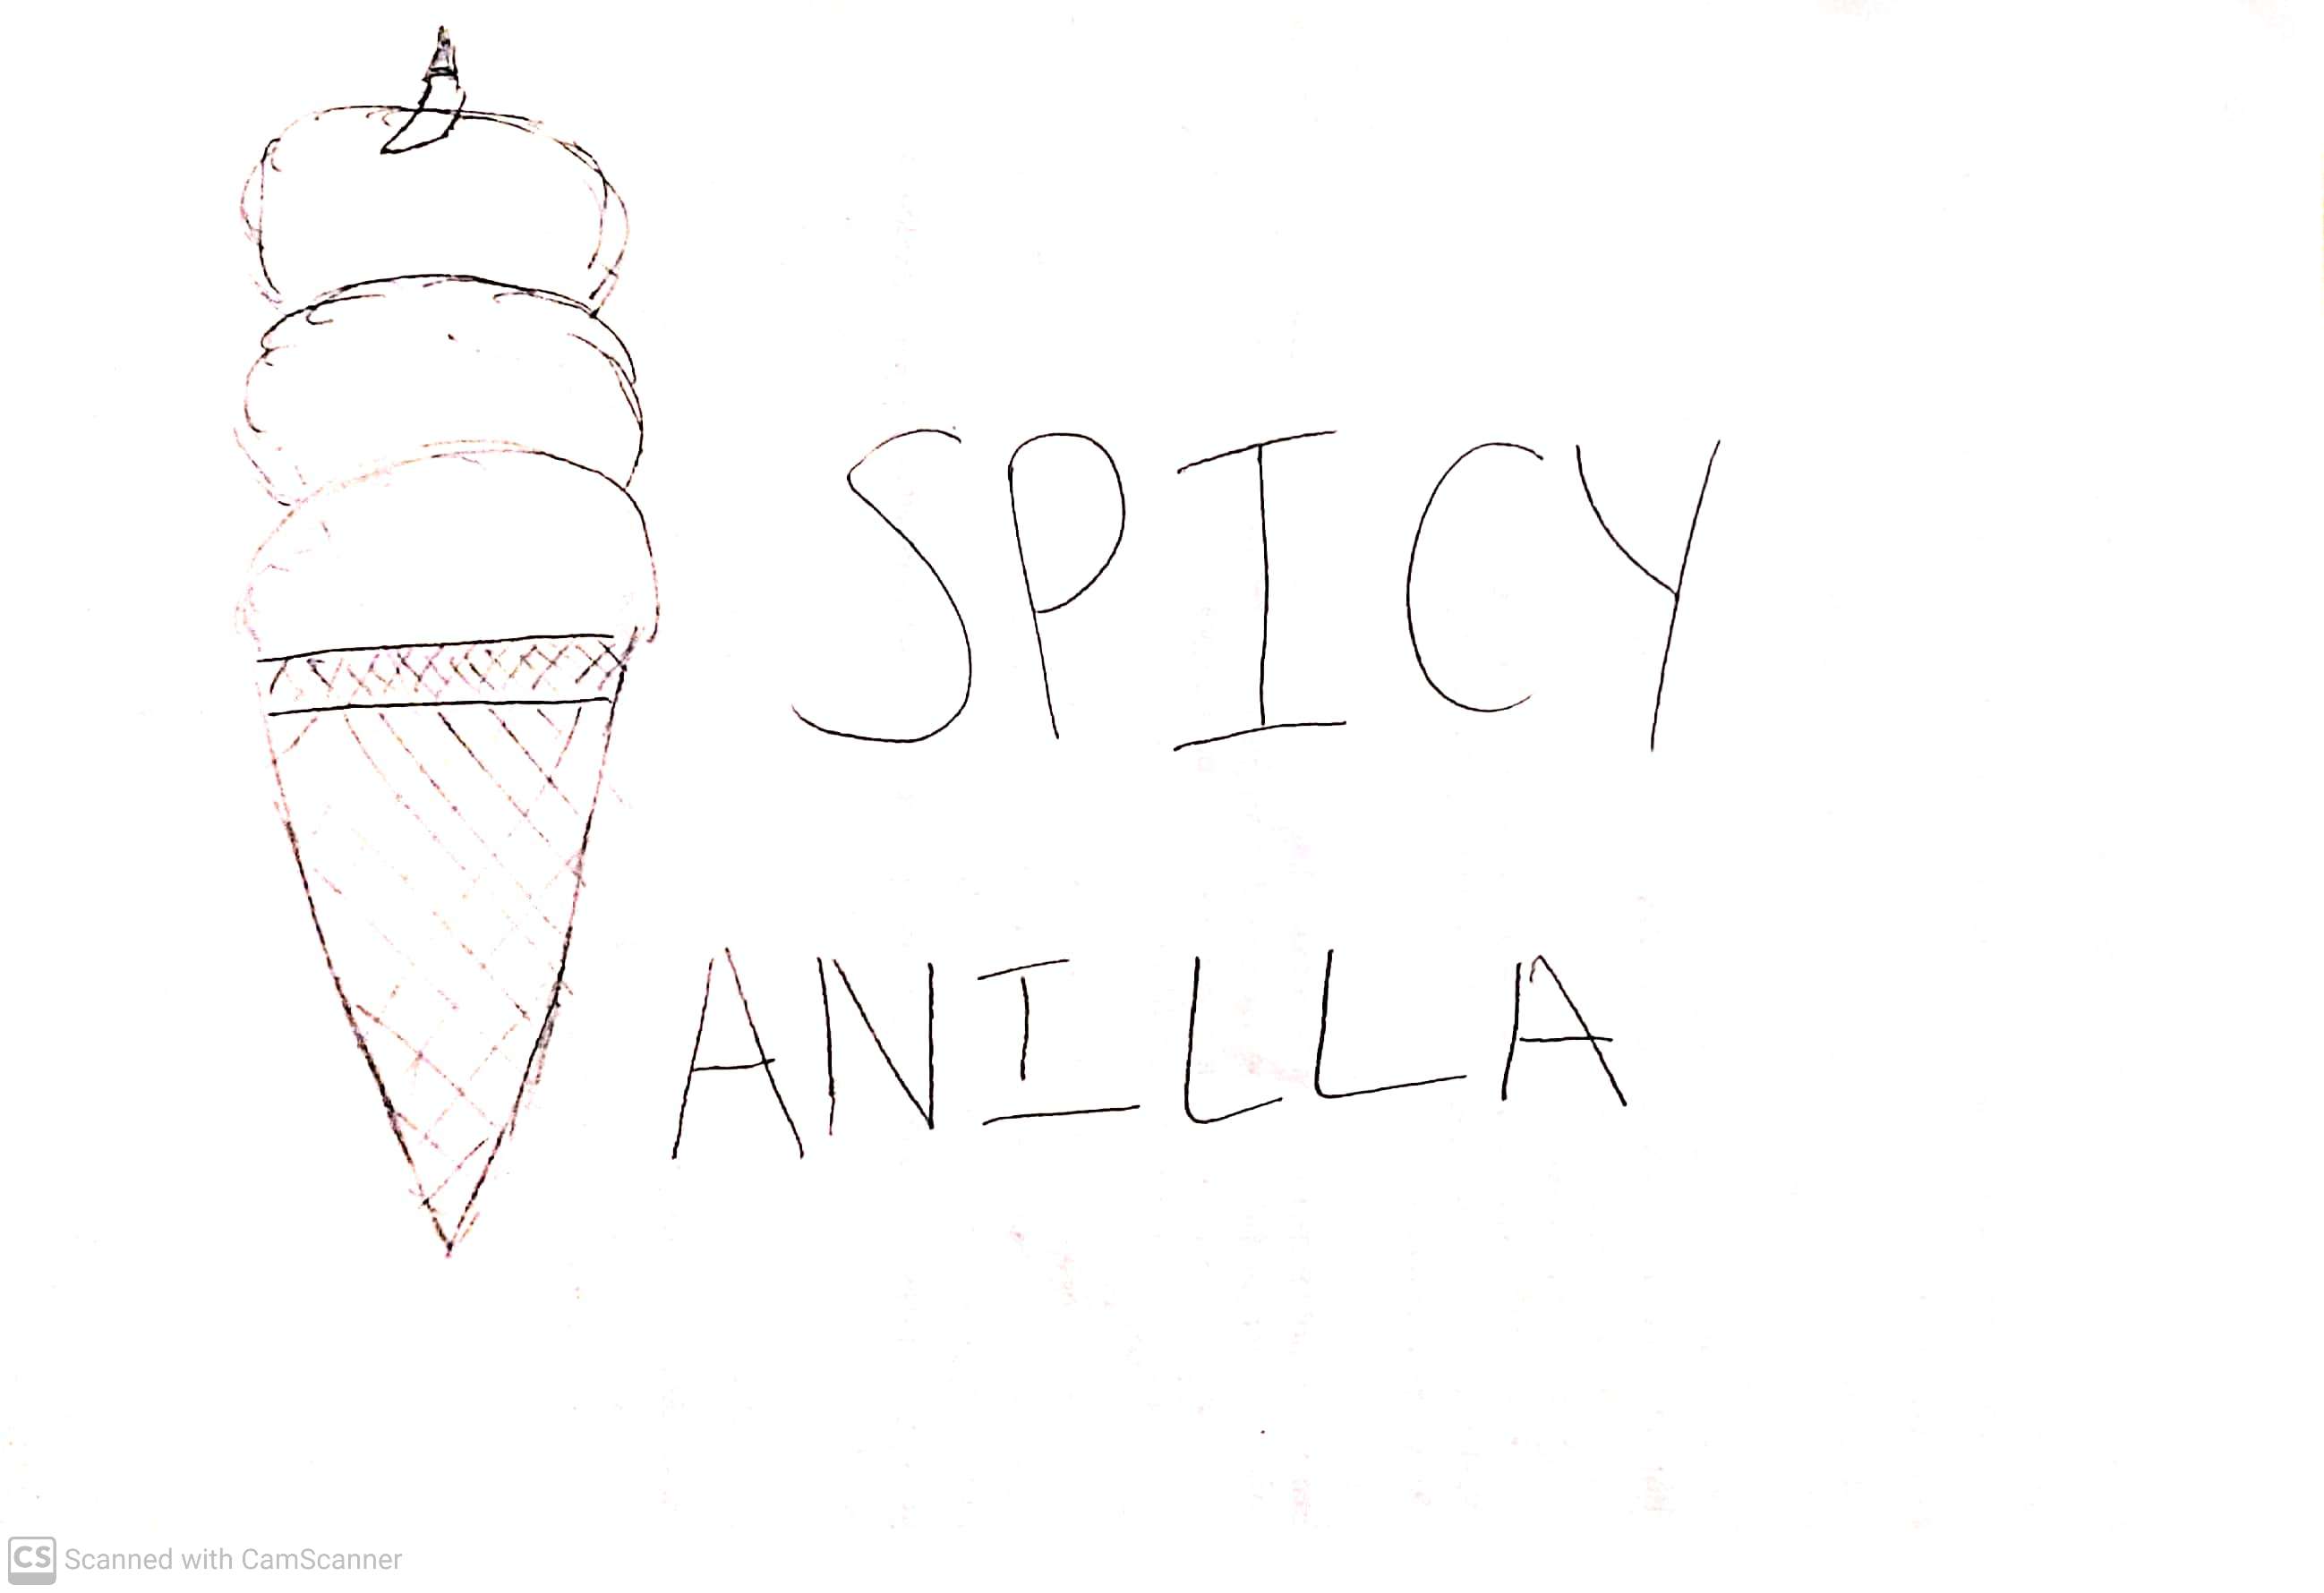 SPICY
ANILLA
CS Scanned with CamScanner